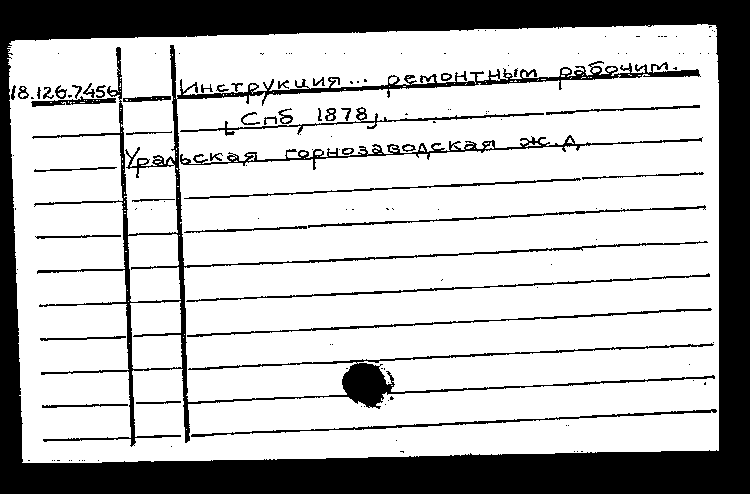 18.126.7456 Инструкция... ремонтным рабочим.
[Спб, 1878].
Уральская горнозаводская ж.д